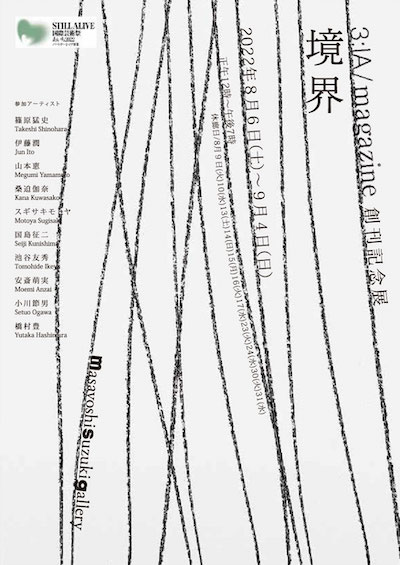 STILL ALIVE
国際芸術祭
あいち2022
3:IA/magazine 創刊記念展
境界
2022年8月6日(土)〜9月4日(日)
正午12時〜午後7時
休館日/8月9日(火)10(水)13(土)14(日)15(月)16(火)17(水)23(火)24(水)30(火)31(水)
参加アーティスト
篠原猛史
Takeshi Shinohara
伊藤潤
Jun Ito
山本恵
Megumi Yamamoto
桑迫伽奈
Kana Kuwasako
スギサキモトヤ
Motoya Sugisaki
国島征二
Seiji Kunishima
池谷友秀
Tomohide Ikeya
安斎萌実
Moemi Anzai
小川節男
Setuo Ogawa
橋村豊
Yutaka Hashimura
masayoshi suzuki gallery